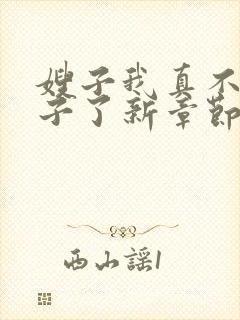 嫂子我真不
子了新章节
西山謡1